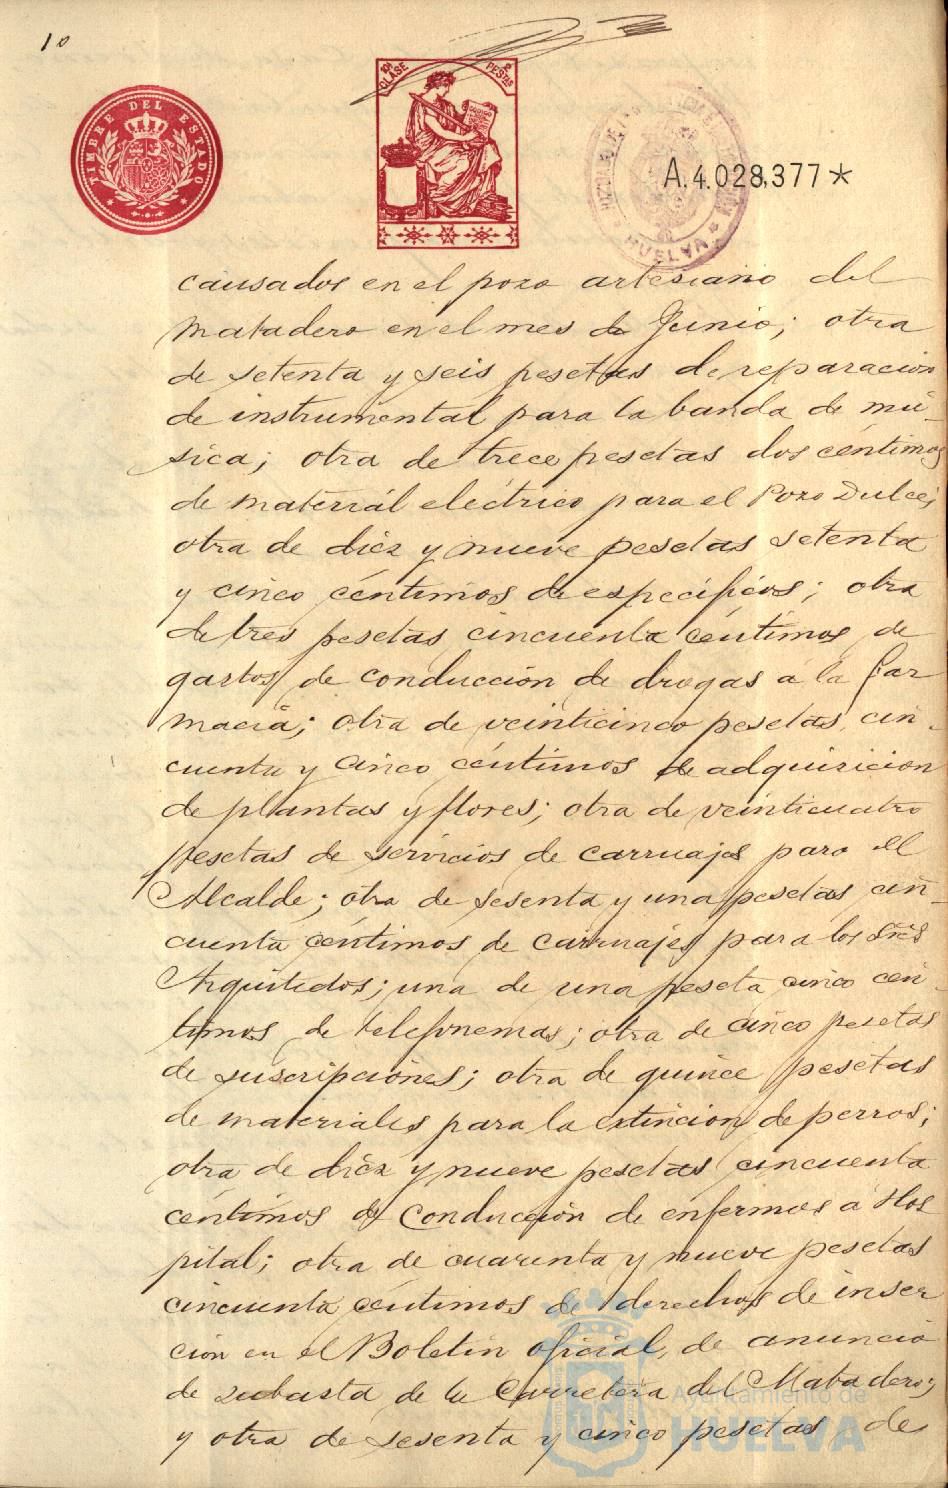 10
TIMBRE DEL ESTADO
10ª CLASE
2 PESTAS
HUELVA
A.4.028,377*
causados en el pozo artesiano del
Matadero en el mes de Junio; otra
de setenta y seis pesetas de reparacion
de instrumental para la banda de mú-
sica; otra de trece pesetas dos céntimos
de material eléctrico para el Pozo Dulce;
otra de diez y nueve pesetas setenta
y cinco céntimos de específicos; otra
de tres pesetas cincuenta céntimos de
gastos de conducción de drogas á la Far
macia; otra de veinticinco pesetas cin-
cuenta y cinco céntimos de adquisicion
de plantas y flores; otra de veinticuatro
pesetas de servicios de carruajes para el
Alcalde; otra de sesenta y una pesetas cin-
cuenta céntimos de carruajes para los Sres
Arquitectos; una de una peseta cinco cén-
timos de telefonemas; otra de cinco pesetas
de suscripciones; otra de quince pesetas
de materiales para la extincion de perros;
otra de diez y nueve pesetas cincuenta
céntimos de conducción de enfermos á Hos
pital; otra de cuarenta y nueve pesetas
cincuenta céntimos de derechos de inser
cion en el Boletin oficial, de anuncio
de subasta de la Carretera del Matadero;
y otra de sesenta y cinco pesetas de
Ayuntamiento de
HUELVA